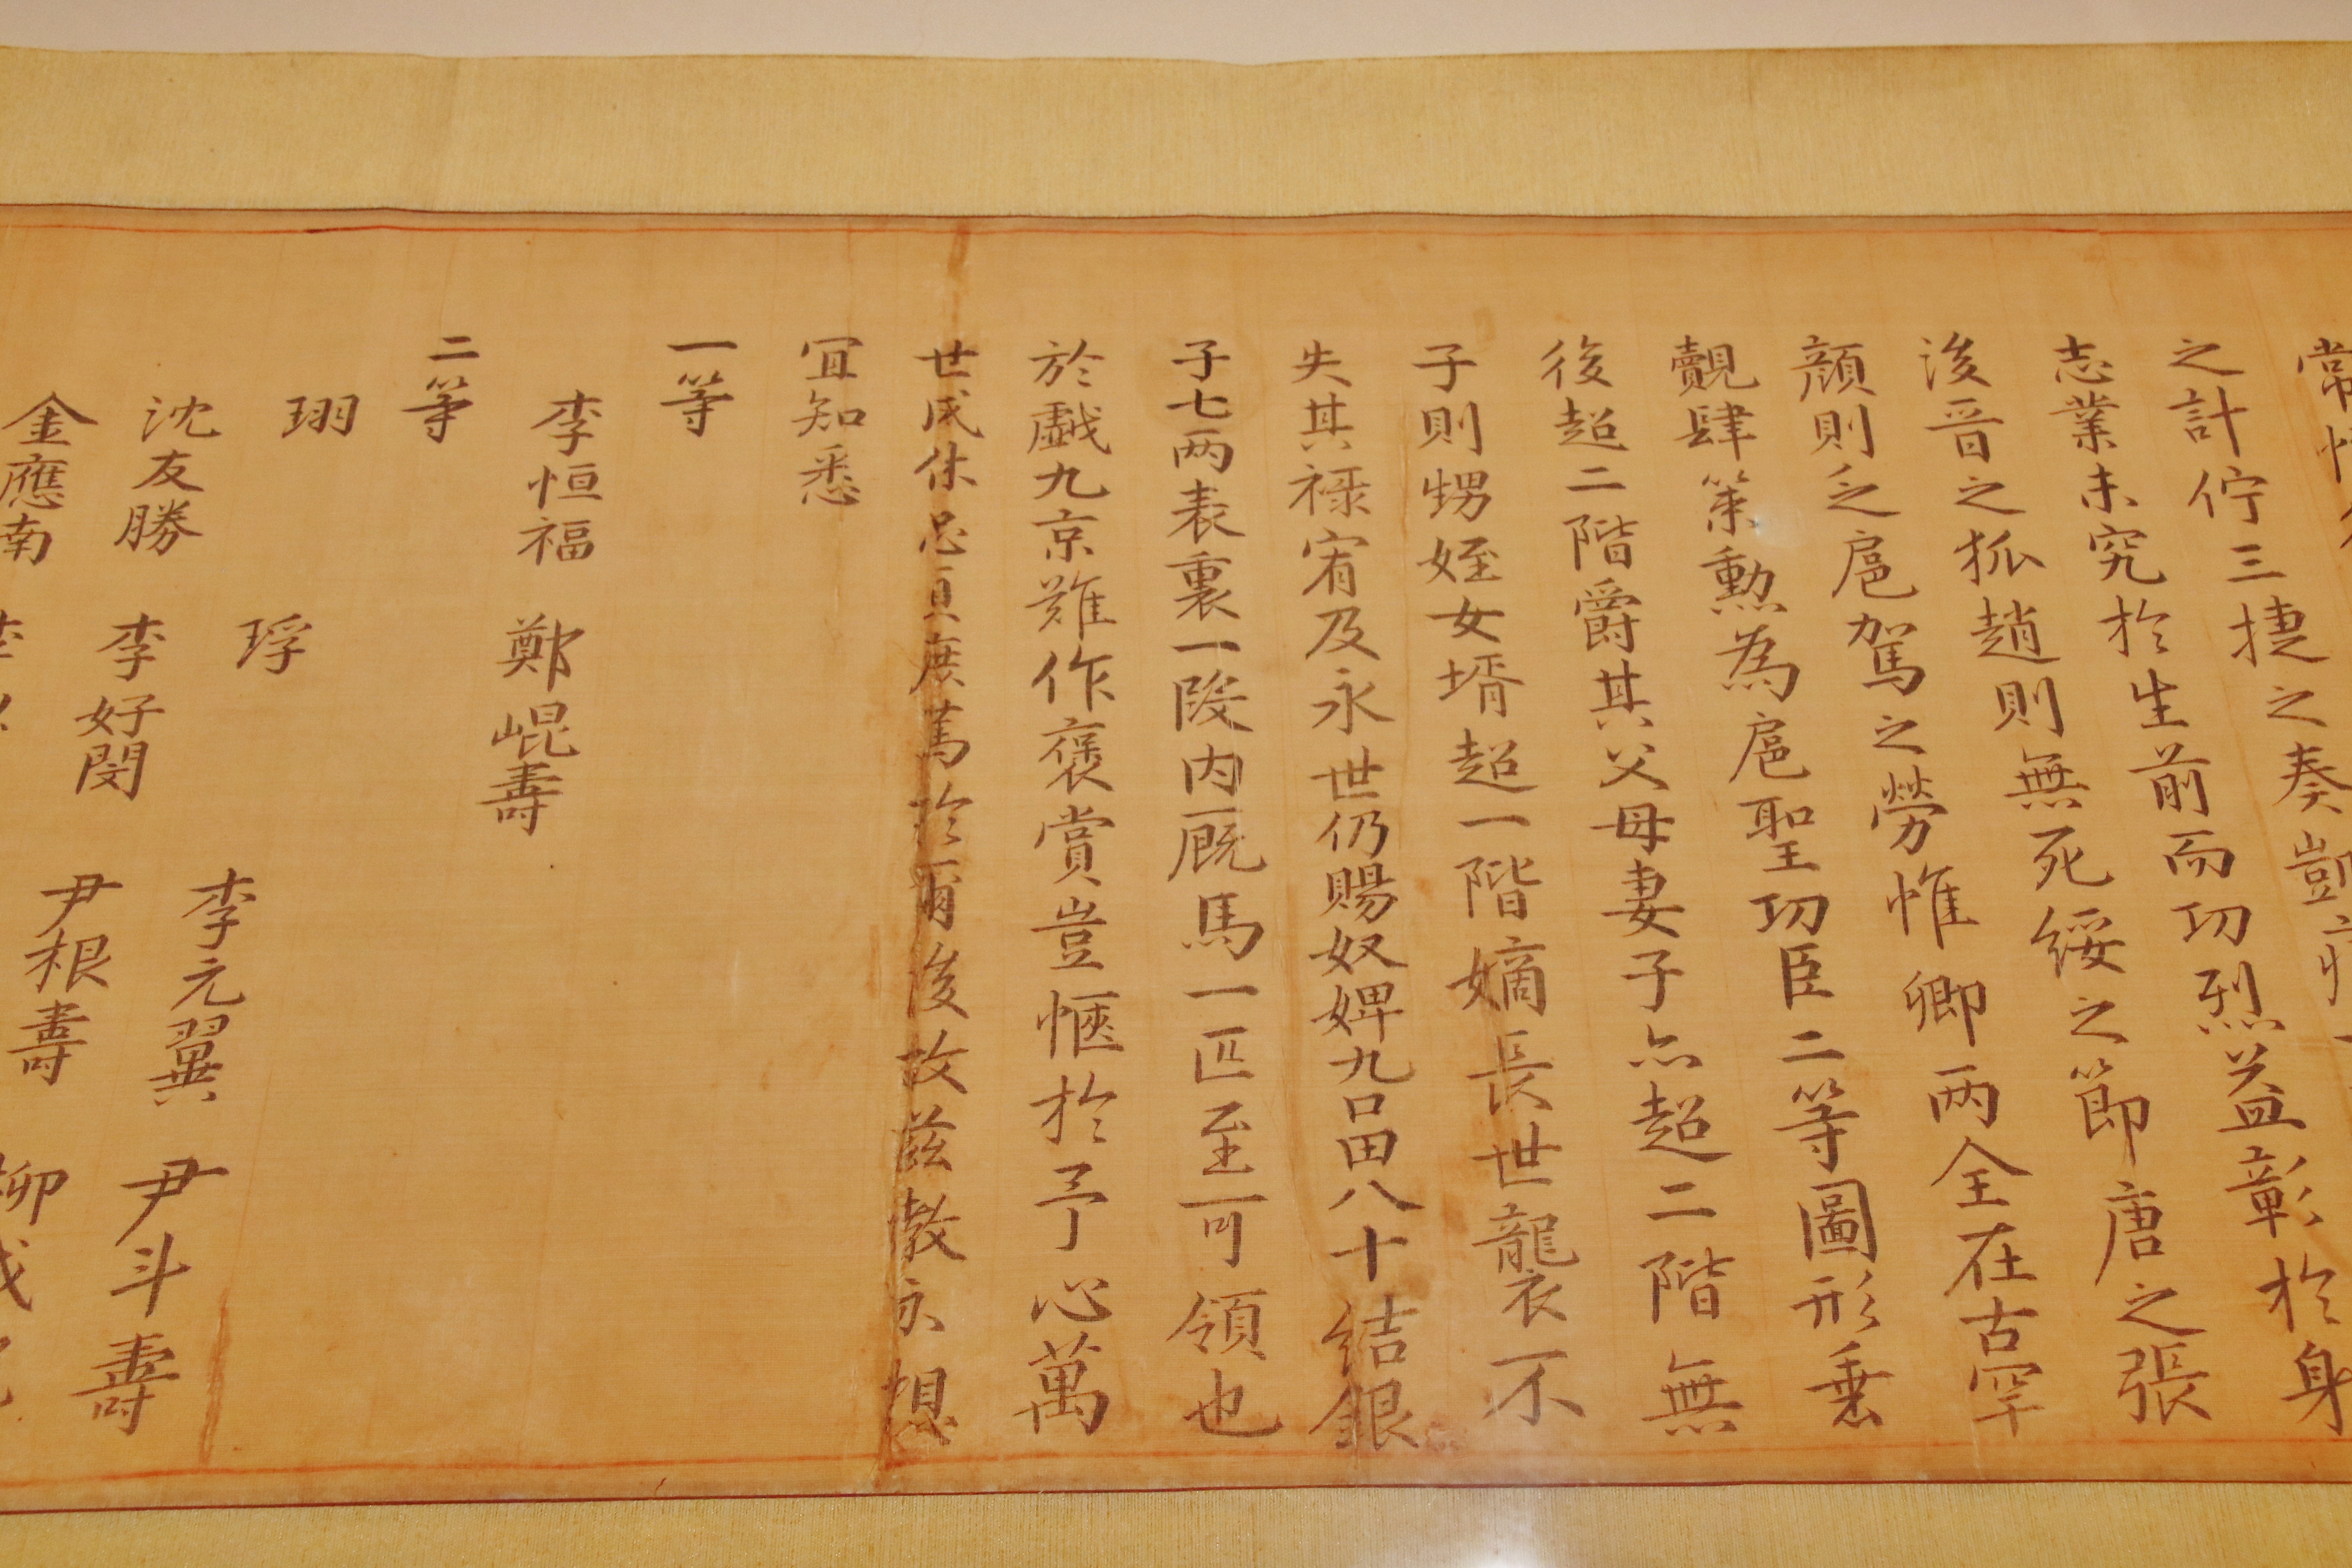 常
之計佇三捷之奏凱
志業未究於生前而功烈益彰於身
後晉之狐趙則無死綏之節唐之張
顔則乏扈駕之勞惟卿兩全在古罕
覿肆策勳為扈聖功臣二等圖形垂
後超二階爵其父母妻子亦超二階無
子則甥姪女壻超一階嫡長世襲不
失其祿宥及永世仍賜奴婢九口田八十結銀
子七兩表裏一段內廐馬一匹至可領也
於戲九京難作褒賞豈愜於予心萬
世戚休忠貞庶篤於爾後故玆敎示想
宜知悉
一等
李恒福 鄭崐壽
二等
珝 琈 李元翼 尹斗壽
沈友勝 李好閔 尹根壽 柳成
金應南